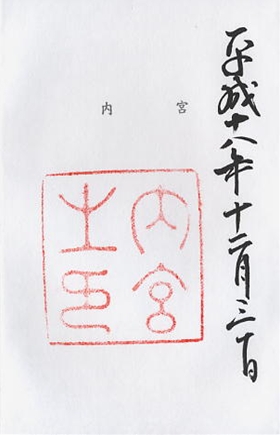 平成十八年十二月三十日
内宮
内宮
之印